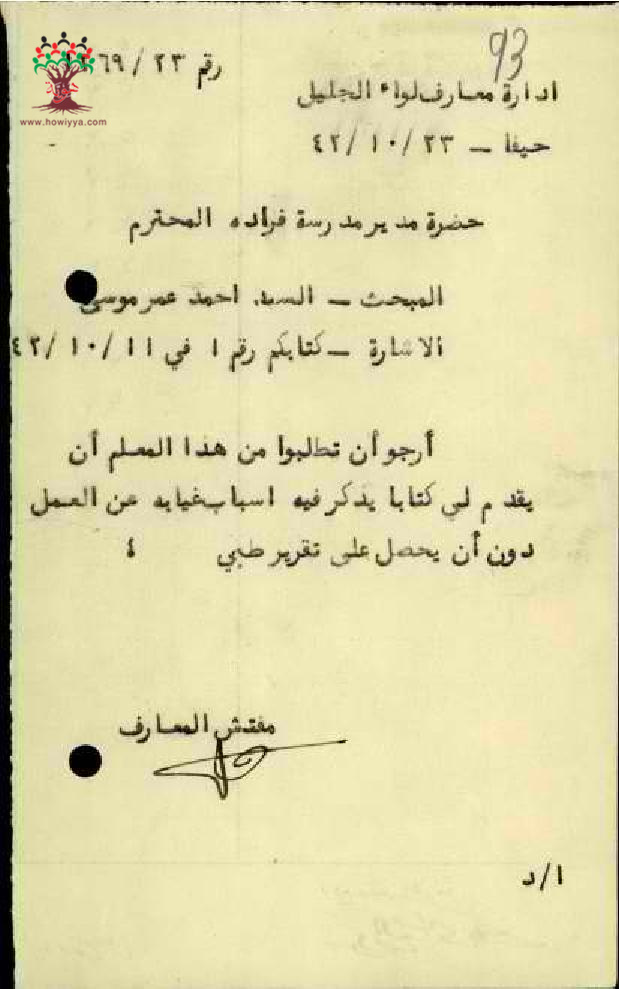 93
رقم ٢٣ / ٦٩
www.howiyya.com
ادارة معارف لواء الجليل
حيفا – ٢٣ /١٠/ ٤٢
حضرة مدير مدرسة فراده المحترم
المبحث – السيد. احمد عمر موسى
الاشارة – كتابكم رقم ١ في ١١ /١٠ /٤٢
أرجو أن تطالبوا من هذا المعلم أن
يقدم لي كتابا يذكر فيه اسباب غيابه عن العمل
دون أن يحصل على تقرير طبي ٤
مفتش المعارف
ا/د